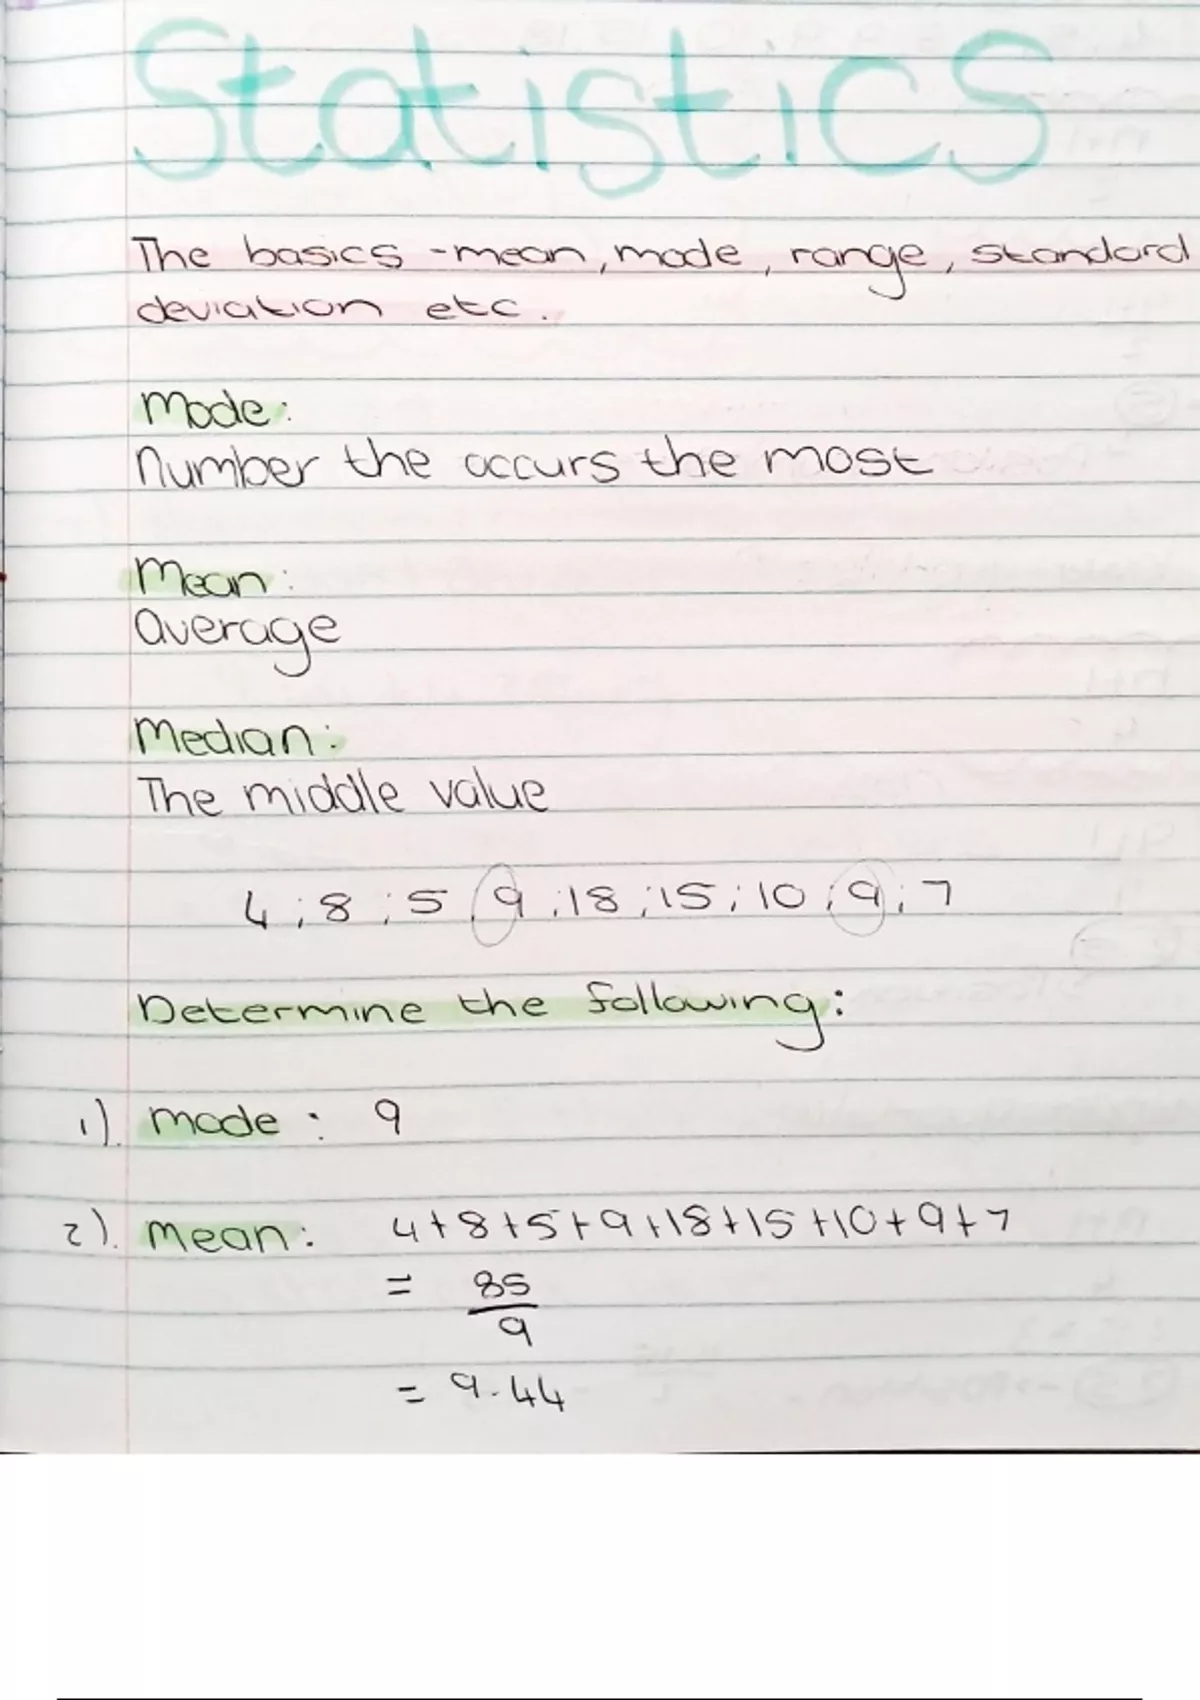 Statistics
The basics - mean, mode, range, standard
deviation etc.
Mode:
Number the occurs the most
Mean:
Average
Median:
The middle value
4 ; 8 ; 5 ; 9 ; 18 ; 15 ; 10 ; 9 ; 7
Determine the following:
1). mode : 9
2). Mean: 4+8+5+9+18+15+10+9+7
= 85
9
= 9.44